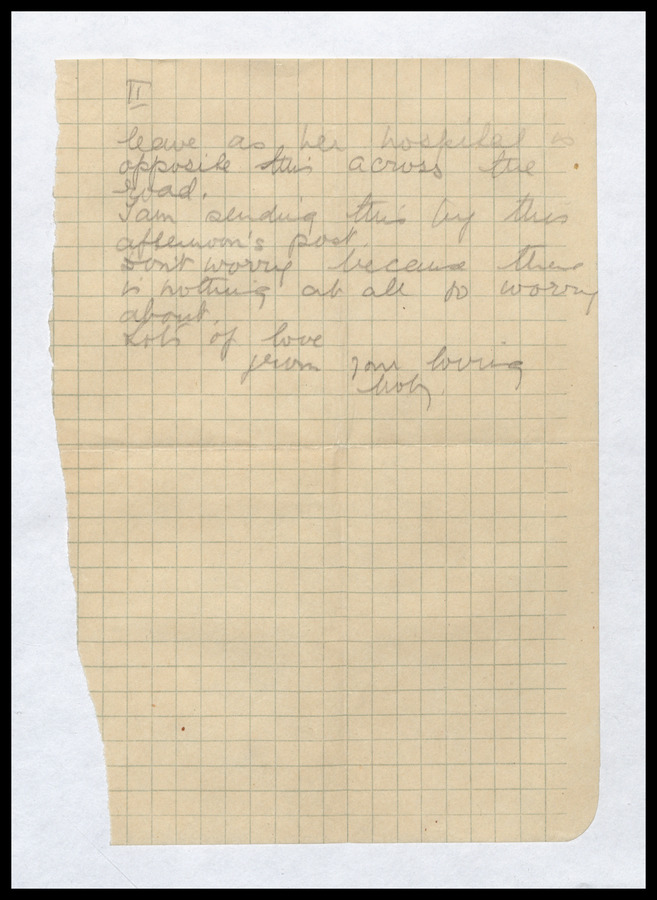 II
leave as her hospital is
opposite this across the
road.
I am sending this by this
afternoon's post.
Don't worry because there
is nothing at all to worry
about.
Lots of love
from your loving